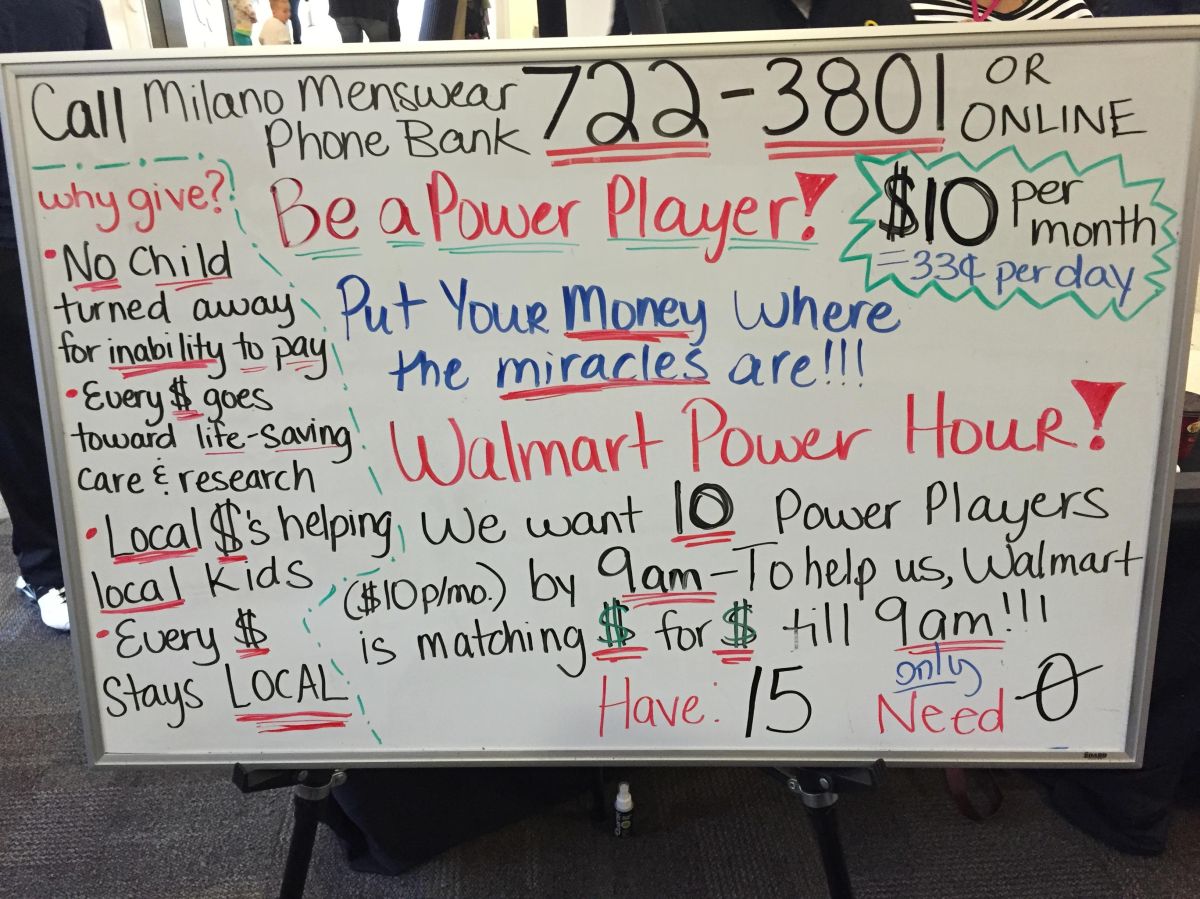 Call Milano Menswear
Phone Bank
722-3801
OR
ONLINE
why give?
• No Child
turned away
for inability to pay
• Every $ goes
toward life-saving
care & research
• Local $'s helping
local kids
• Every $
stays LOCAL
Be a Power Player!
$10 per
month
=33¢ per day
Put Your Money Where
the miracles are!!!
Walmart Power Hour!
We want 10 Power Players
($10p/mo.) by 9am-To help us, Walmart
is matching $ for $ till 9am!!!
Have: 15
only
Need 0